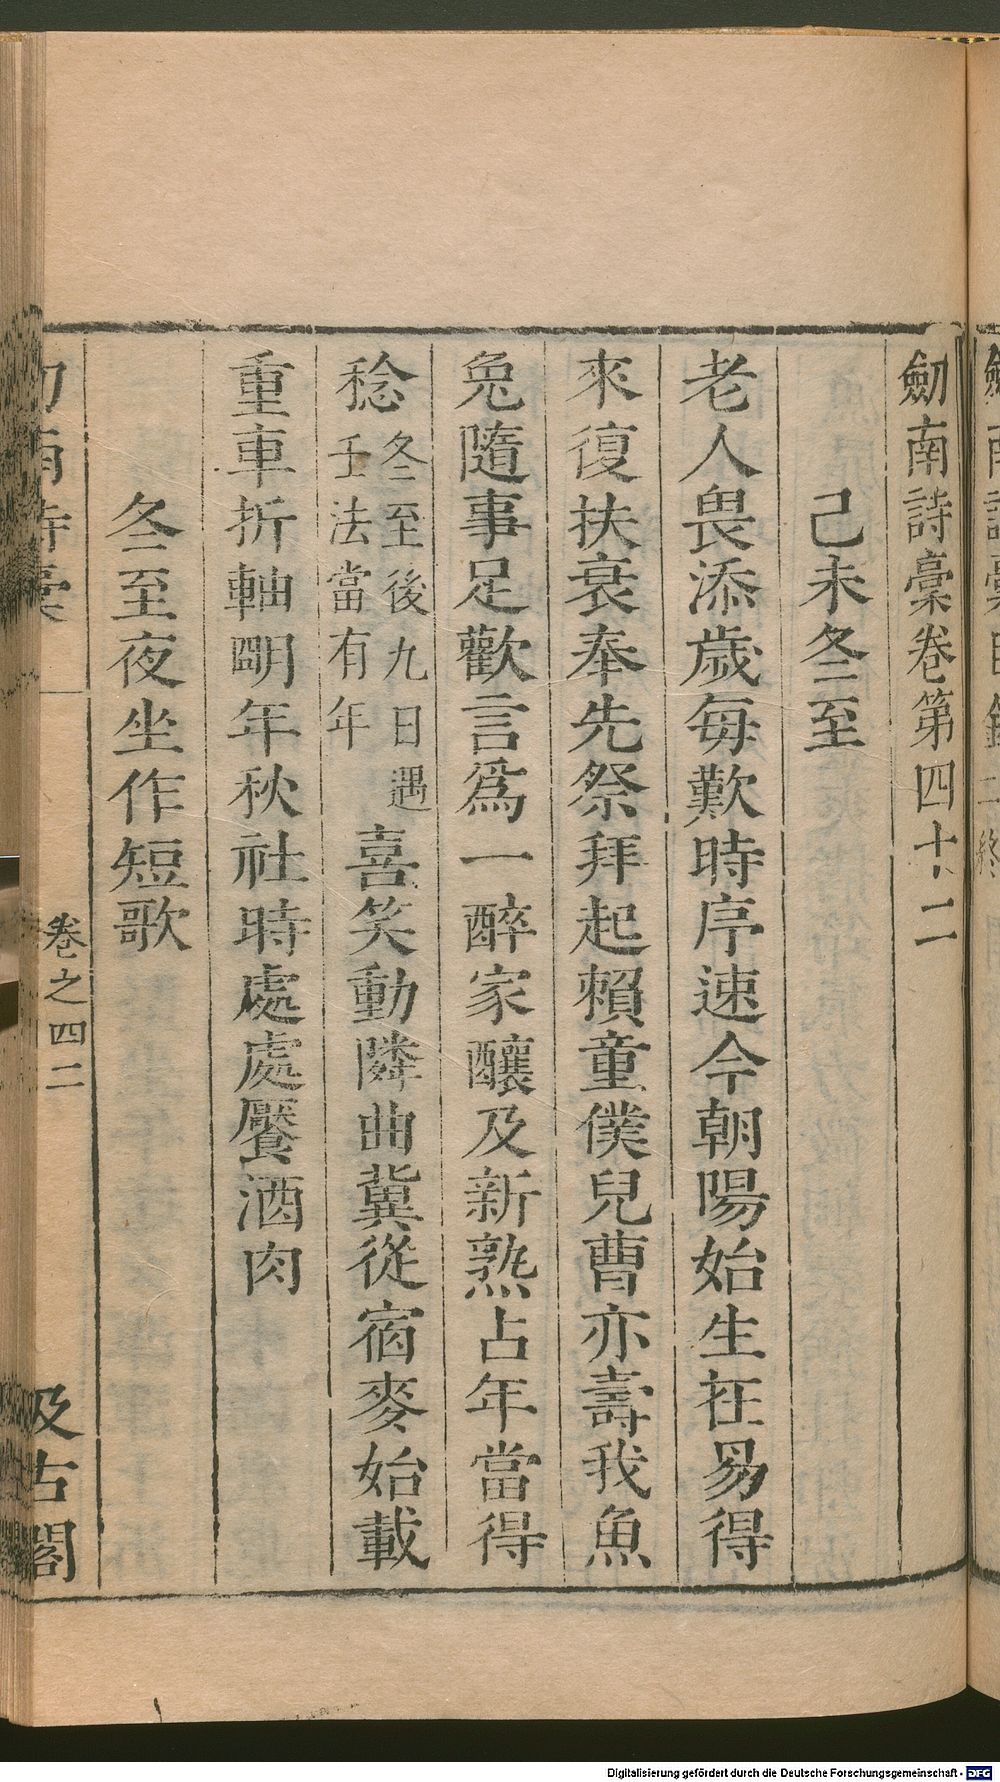 劒南詩稾卷第四十二
己未冬至
老人畏添歲每歎時序速今朝陽始生在易得
來復扶衰奉先祭拜起賴童僕兒曹亦壽我魚
兔隨事足歡言爲一醉家釀及新熟占年當得
稔冬至後九日遇壬法當有年喜笑動隣曲冀從宿麥始載
重車折軸朙年秋社時處處饜酒肉
冬至夜坐作短歌
南詩稾
卷之四二
汲古閣
Digitalisierung gefördert durch die Deutsche Forschungsgemeinschaft - DFG